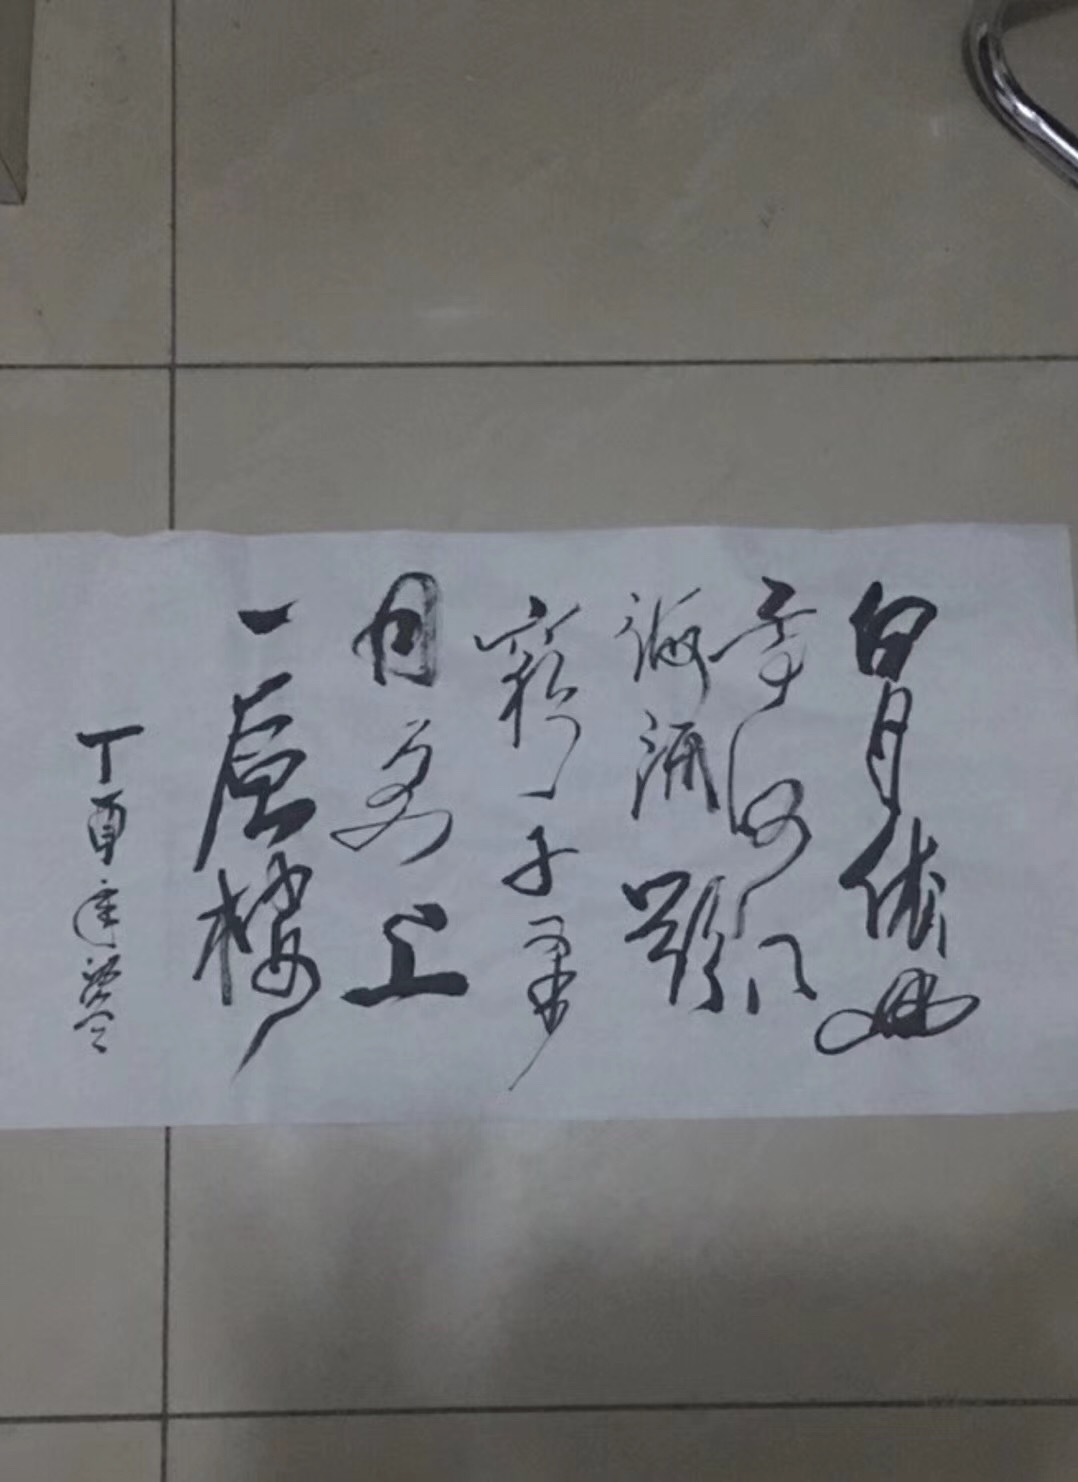 白日依山
黄河入
海流欲
窮千里
目更上
一層樓
丁酉年